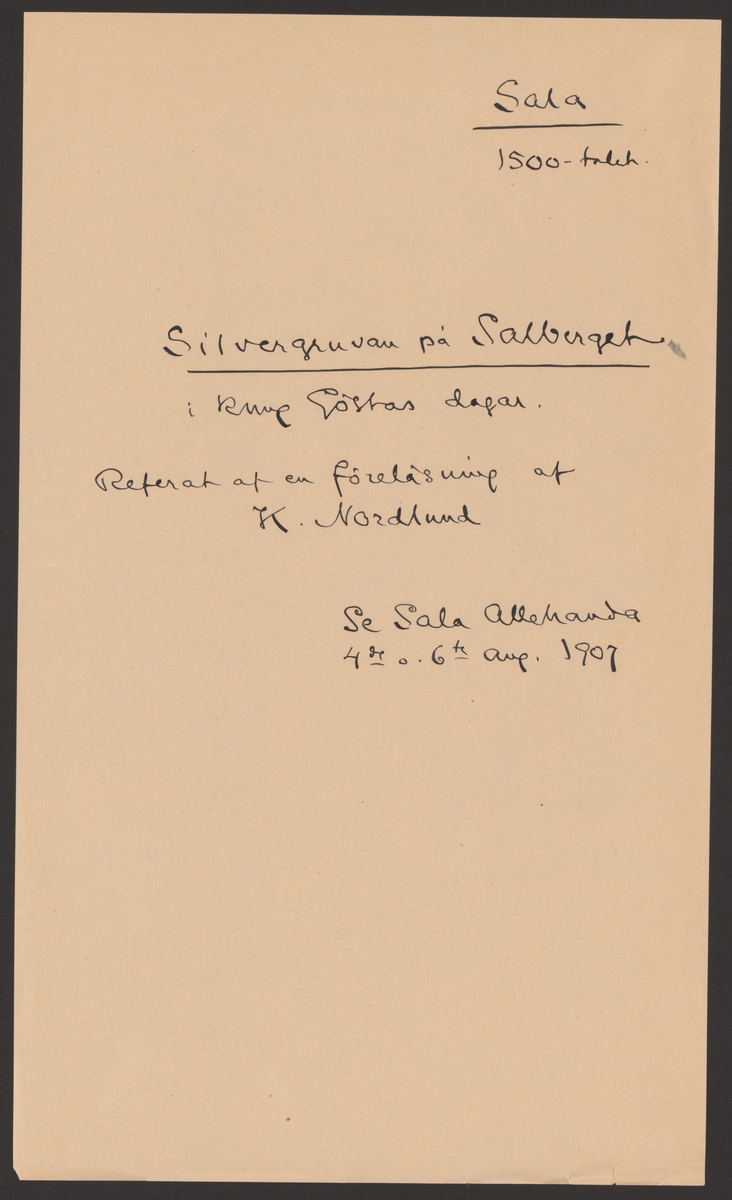 Sala
1500-talet.
Silvergruvan på Salberget
i kung Göstas dagar.
Referat af en föreläsning af
K. Nordlund
Se Sala Allehanda
4de o. 6te Aug. 1907